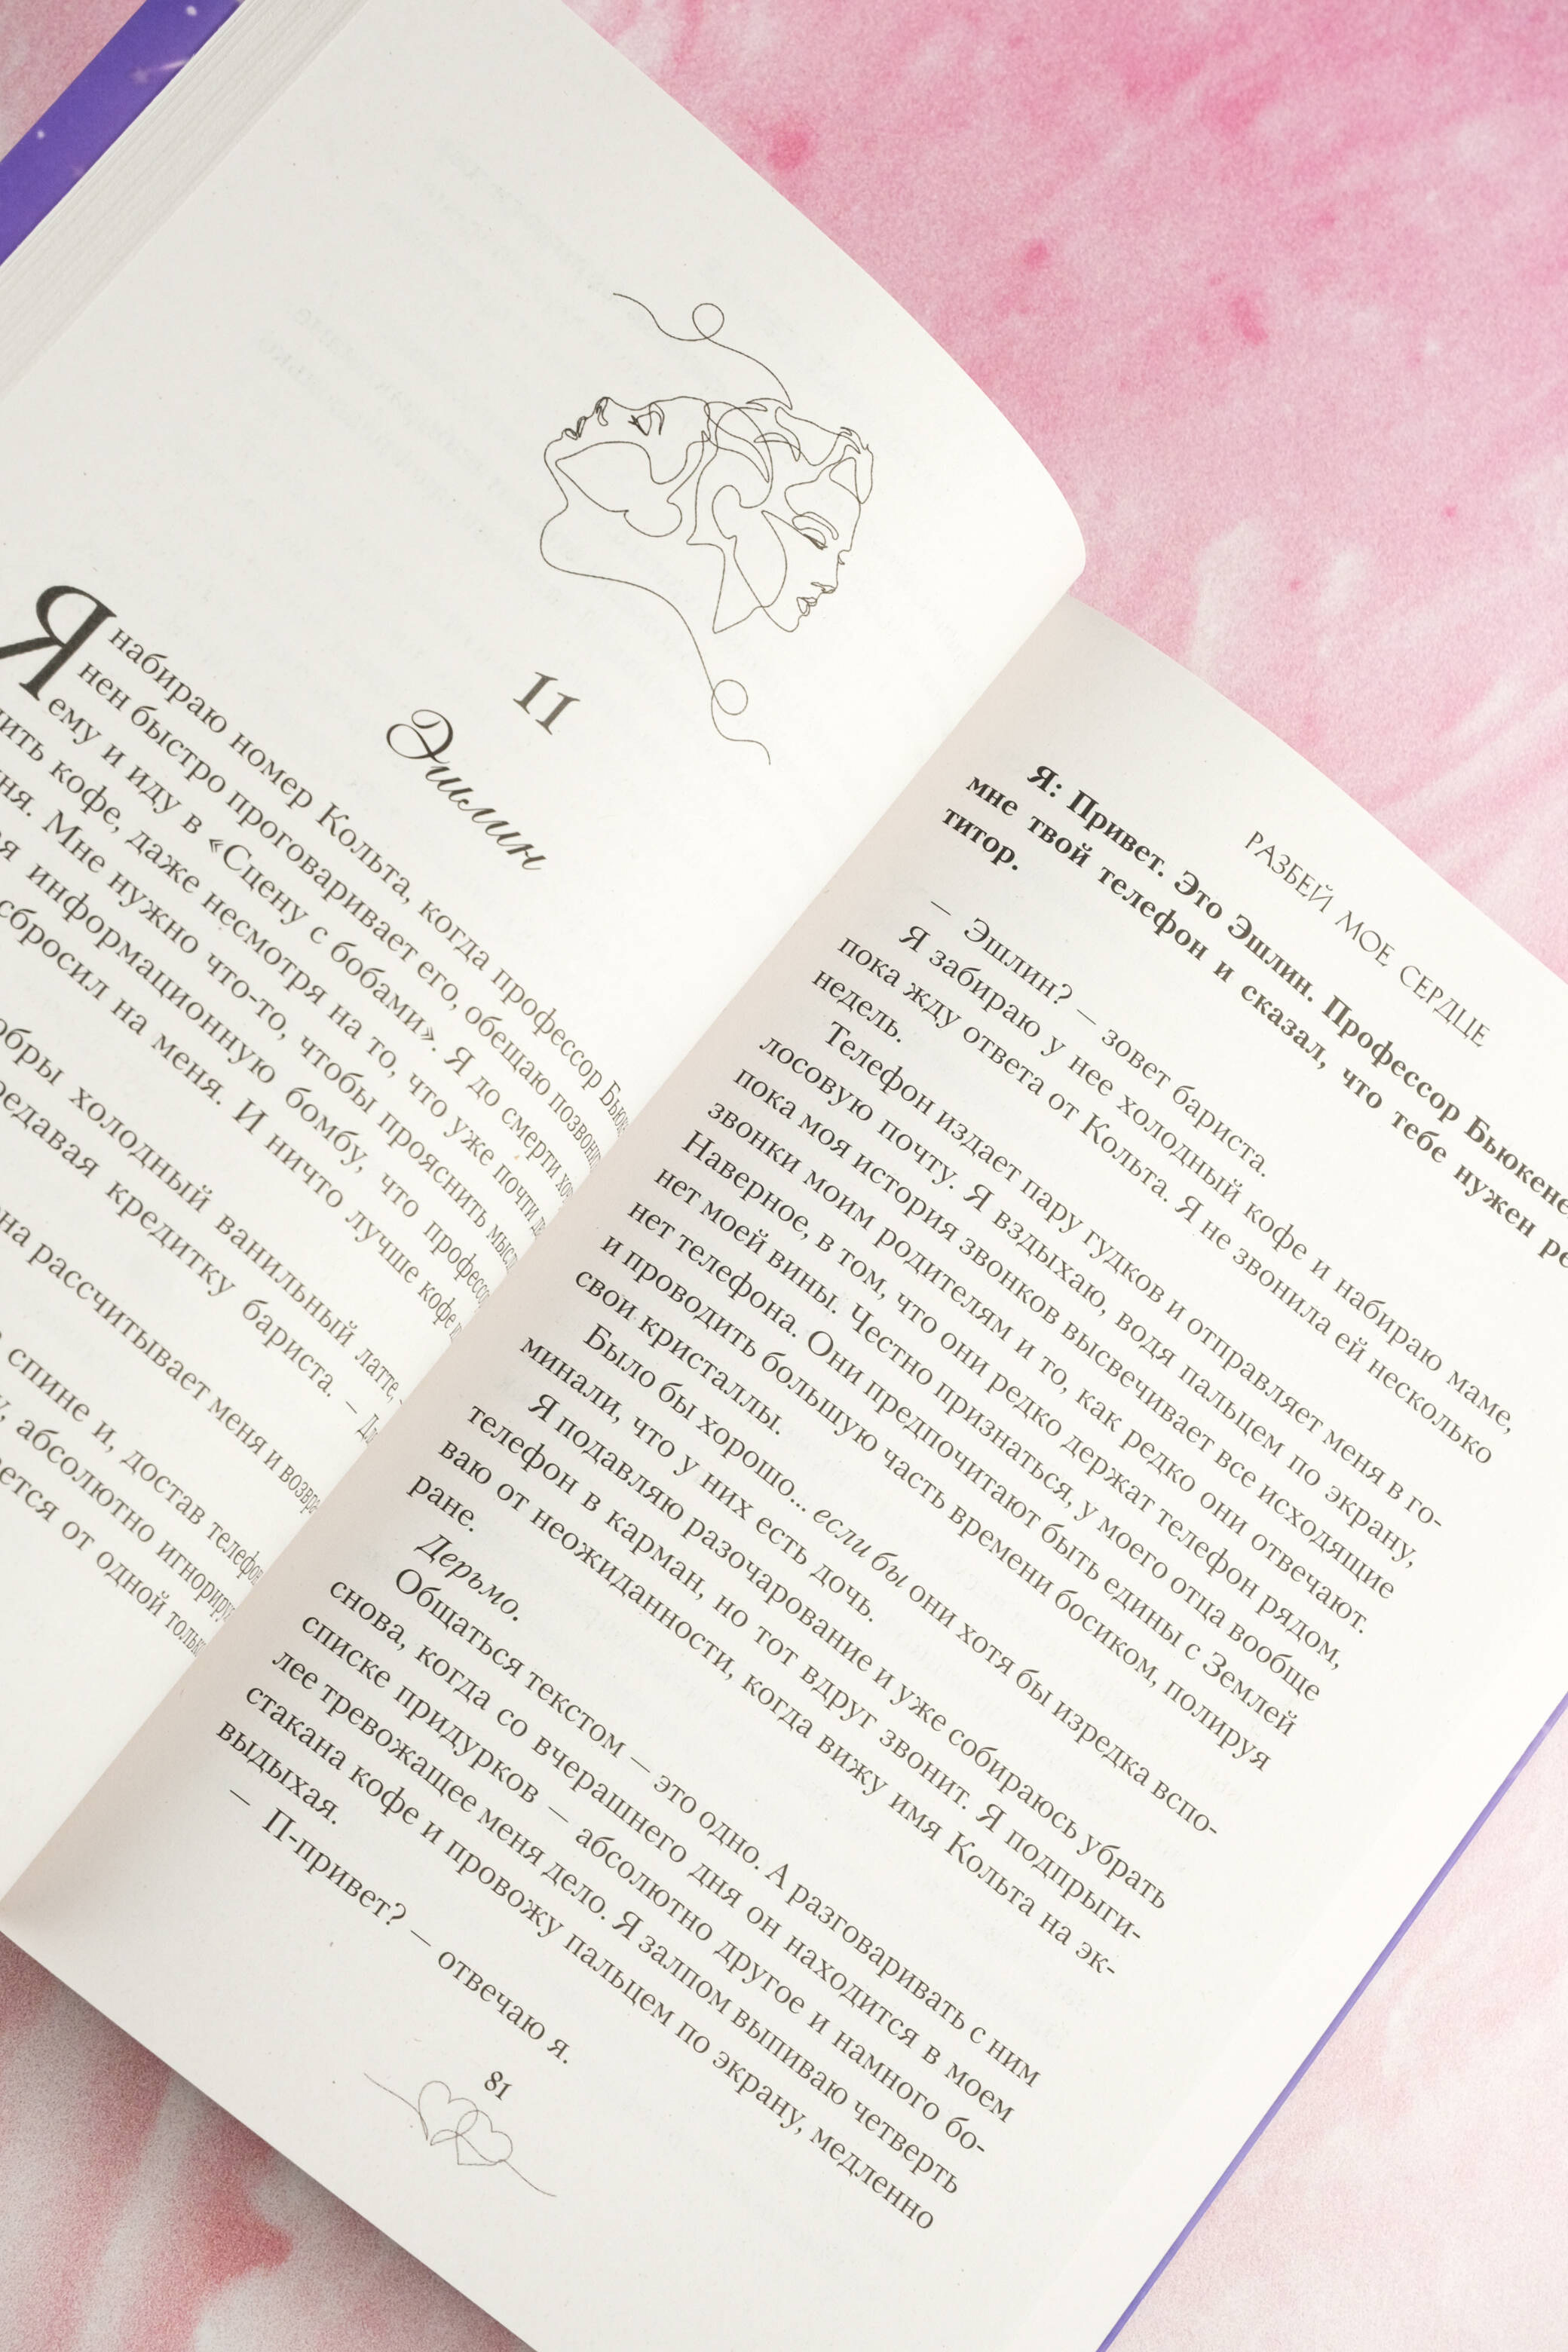 11
Эшлин
Я набираю номер Кольта, когда профессор
нен быстро проговаривает его, обещаю
ему и иду в «Сцену с бобами». Я до смерти
кофе, даже несмотря на то, что уже почти
Мне нужно что-то, чтобы прояснить
информационную бомбу, что профессор
сбросил на меня. И ничто лучше кофе
холодный ванильный латте, –
кредитку бариста. –
рассчитывает меня и
спине и, достав телефон
абсолютно
от одной только
РАЗБЕЙ МОЕ СЕРДЦЕ
Я: Привет. Это Эшлин. Профессор
мне твой телефон и сказал, что тебе нужен
титор.
— Эшлин? — зовет бариста.
Я забираю у нее холодный кофе и набираю маме,
пока жду ответа от Кольта. Я не звонила ей несколько
недель.
Телефон издает пару гудков и отправляет меня в го-
лосовую почту. Я вздыхаю, водя пальцем по экрану,
пока моя история звонков высвечивает все исходящие
звонки моим родителям и то, как редко они отвечают.
Наверное, в том, что они редко держат телефон рядом,
нет моей вины. Честно признаться, у моего отца вообще
нет телефона. Они предпочитают быть едины с Землей
и проводить большую часть времени босиком, полируя
свои кристаллы.
Было бы хорошо... если бы они хотя бы изредка вспо-
минали, что у них есть дочь.
Я подавляю разочарование и уже собираюсь убрать
телефон в карман, но тот вдруг звонит. Я подпрыги-
ваю от неожиданности, когда вижу имя Кольта на эк-
ране.
Дерьмо.
Общаться текстом — это одно. А разговаривать с ним
снова, когда со вчерашнего дня он находится в моем
списке придурков — абсолютно другое и намного бо-
лее тревожащее меня дело. Я залпом выпиваю четверть
стакана кофе и провожу пальцем по экрану, медленно
выдыхая.
— П-привет? — отвечаю я.
81